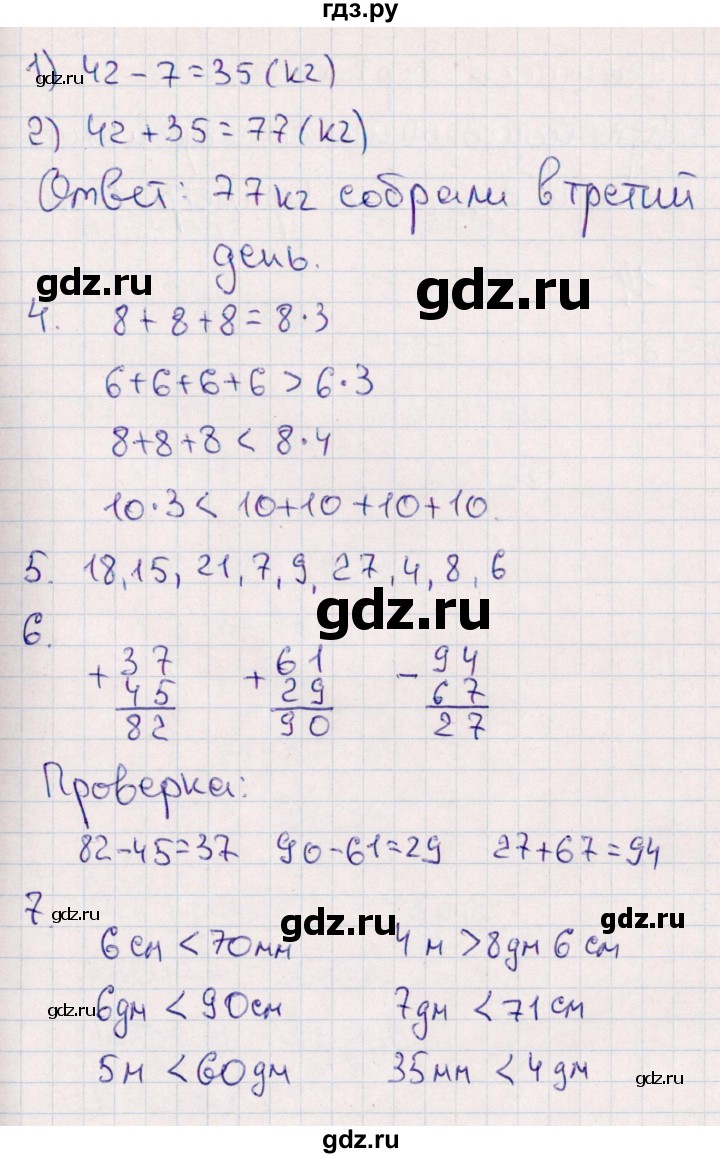 гдз.ру
1) 42 - 7 = 35 (кг)
gdz.ru
2) 42 + 35 = 77 (кг)
Ответ: 77 кг собрали в третий
день.
gdz.ru
gdz.ru
4. 8 + 8 + 8 = 8 · 3
6+6+6+6 > 6 · 3
8+8+8 < 8 · 4
10 · 3 < 10+10+10+10.
5. 18, 15, 21, 7, 9, 27, 4, 8, 6
gdz.ru
6.
+ 37 + 61 - 94
45 29 67
82 90 27
Проверка:
82-45=37 90-61=29 27+67=94
7.
gdz.ru gdz.ru gdz.ru
6 см < 70 мм 4 м > 8 дм 6 см
gdz.ru
6 дм < 90 см 7 дм < 71 см
5 м < 60 дм 35 мм < 4 дм
gdz.ru
gdz.ru